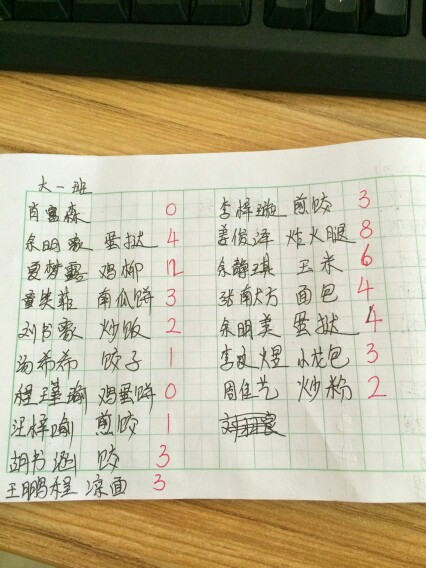 大一班
肖富森 0
余明 蛋挞 4
夏梦露 鸡柳 12
童英菲 南瓜饼 3
刘书豪 炒饭 2
汤希希 饺子 1
程瑾瑜 鸡蛋饼 0
汪梓瑜 煎饺 1
胡书涵 饺 3
王鹏程 凉面 3
李梓璇 煎饺 3
姜俊泽 炸火腿 8
余静琪 玉米 6
张南大方 面包 4
余明美 蛋挞 4
李煜 小龙包 3
周佳艺 炒粉 2